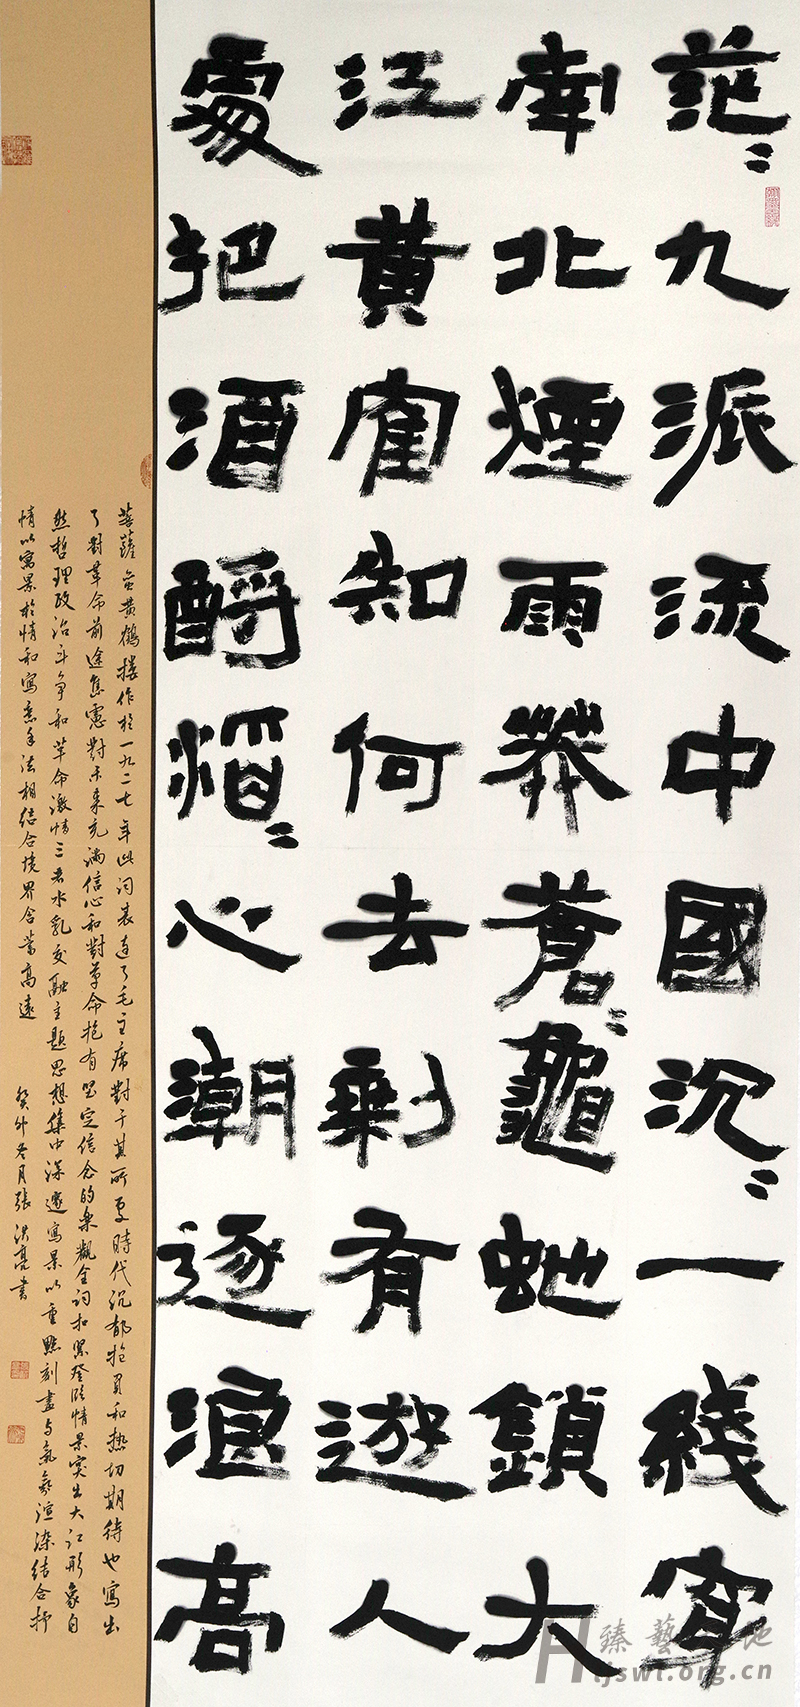 茫〻九派流中國沉〻一綫穿
南北煙雨莽蒼〻龜蛇鎖大
江黃隺知何去剩有遊人
處把酒酹滔〻心潮逐浪高
菩薩蠻黄鶴樓作於一九二七年此词表達了毛主席對于其所處時代沉郁抱負和热切期待也寫出
了對革命前途焦慮對未来充滿信心和對革命抱有堅定信念的樂觀全词扣緊登临情景突出大江形象自
然哲理政治斗争和革命激情三者水乳交融主題思想集中深邃寫景以重點刻畫与氣氛渲染结合抒
情以寓景於情和寫意手法相结合境界含蓄高遠
癸卯冬月張洪亮書
臻藝 地
jswt.org.cn